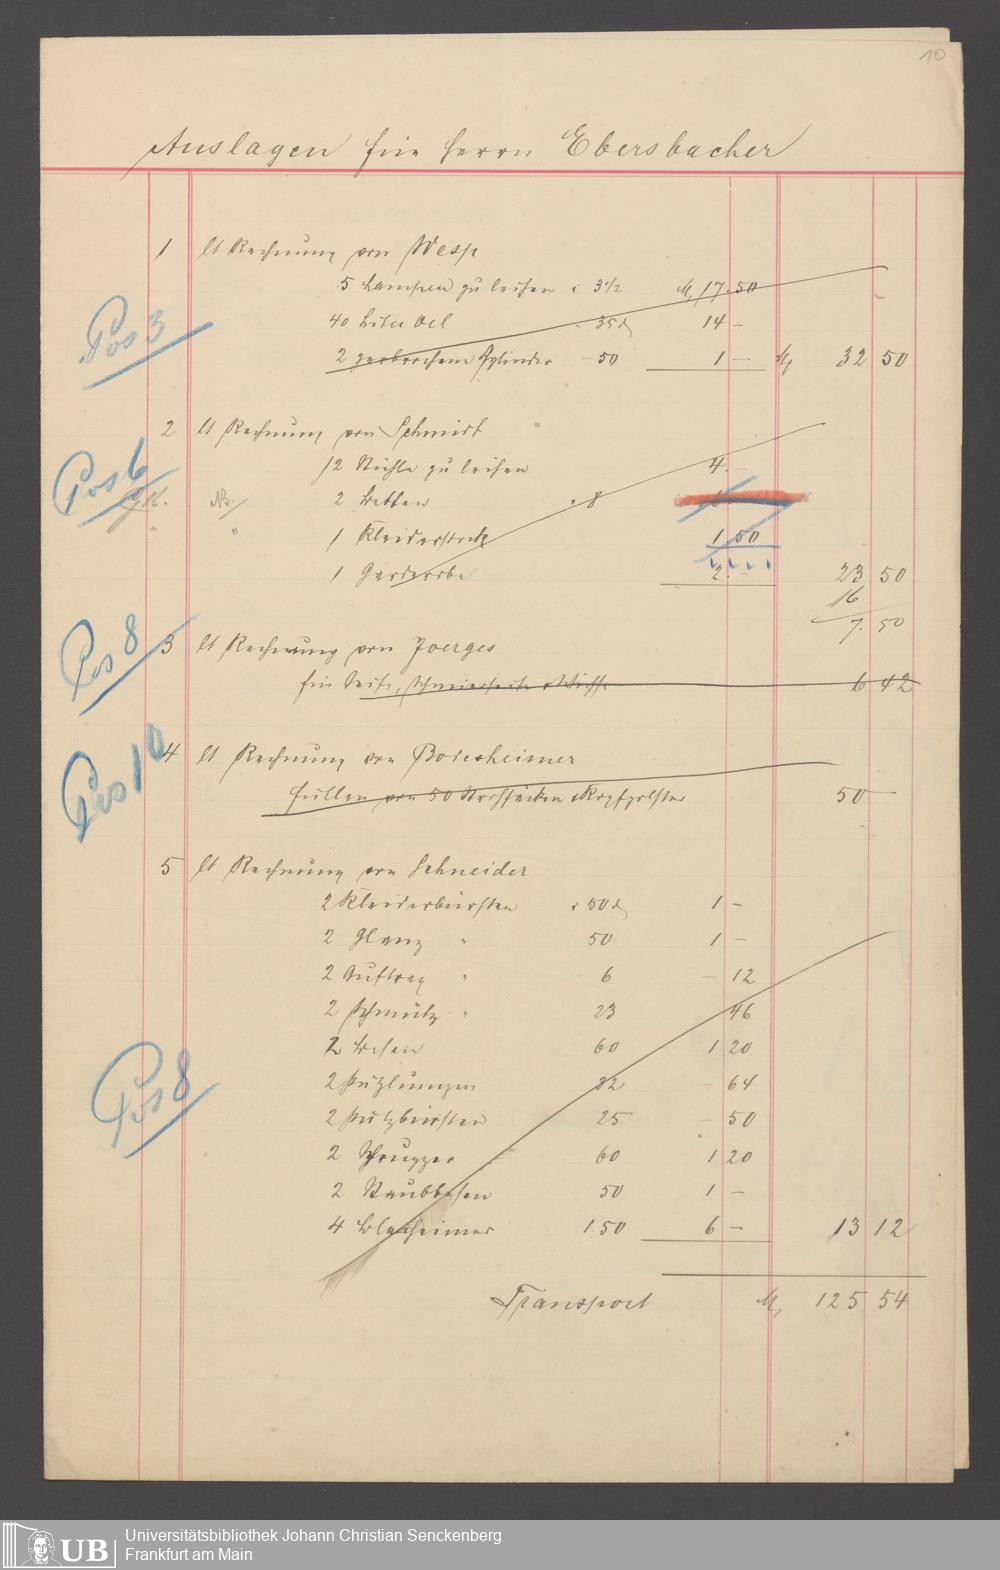 10
Auslagen für Herrn Ebersbacher
1 lt Rechnung von Wesp
5 Lampen zu leihen a 3 1/2 M 17.50
Pos 3
40 Liter Oel - 35 d 14 -
2 zerbrochene Cylinder - 50 1 - M 32 50
2 lt Rechnung von Schmidt
12 Stühle zu leihen 4.-
Pos 6
2 Betten a 8
1 Kleiderstock 1.50
1 Garderobe 2.- 23 50
16
7.50
Pos 8
3 lt Rechnung von Joerges
für Seife, Schmierseife & Wichse 6 42
Pos 10
4 lt Rechnung von Boresheimer
Füllen von 50 Strohsäcken & Kopfpolster 50 -
5 lt Rechnung von Schneider
2 Kleiderbürsten a 50 d 1 -
2 Glanz " 50 1 -
2 Auftrag " 6 - 12
2 Schmutz " 23 46
2 Besen 60 1 20
Pos 8
2 Putzlumpen 32 - 64
2 Putzbürsten 25 - 50
2 Schrupper 60 1 20
2 Staubbesen 50 1 -
4 Blecheimer 1.50 6 - 13 12
Transport M 125 54
UB
Universitätsbibliothek Johann Christian Senckenberg
Frankfurt am Main